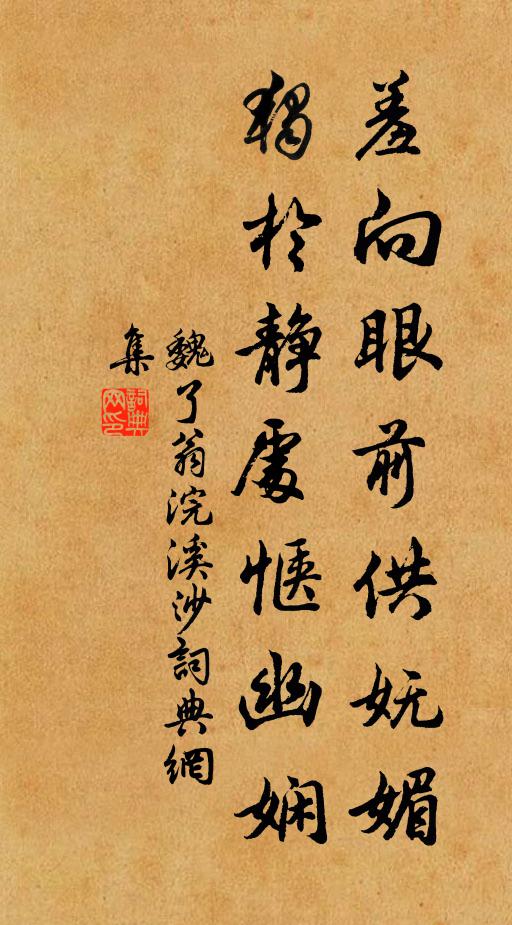 羞向眼前供妩媚
独於静處惬幽娴
魏了翁浣溪沙詞典網
集
詞典网印